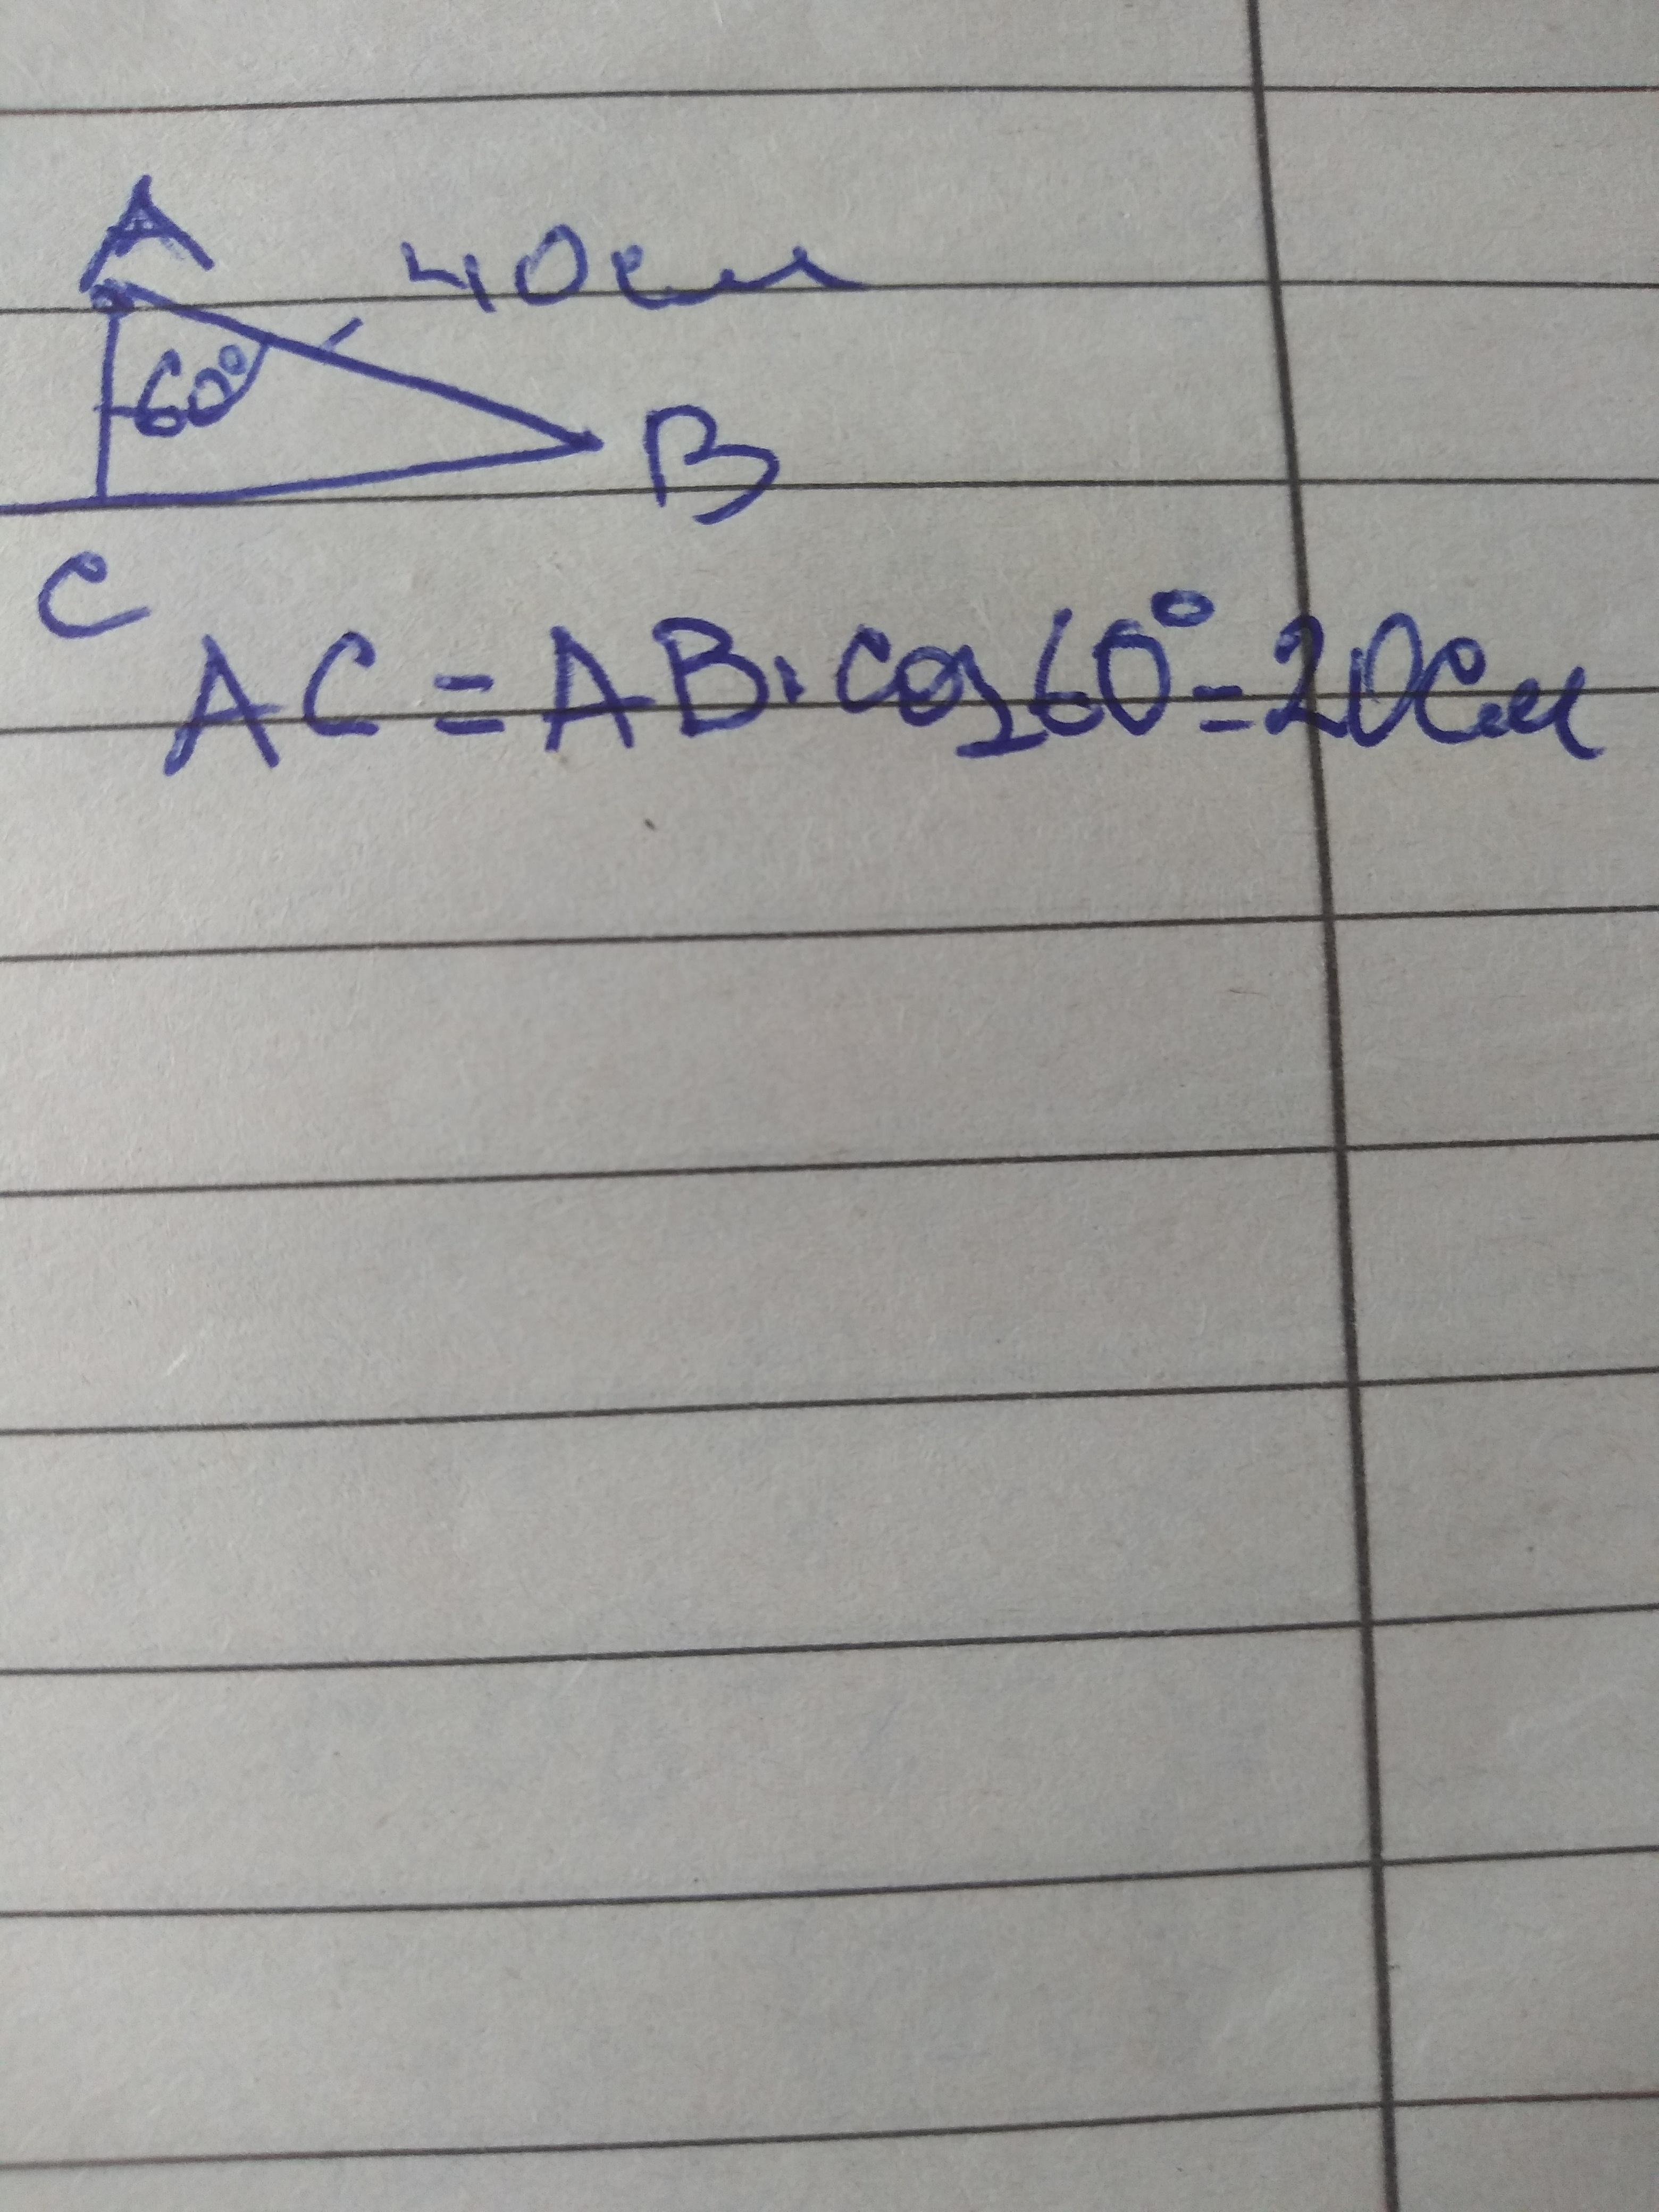 A
40см
60°
B
C
AC = AB · cos 60° = 20см